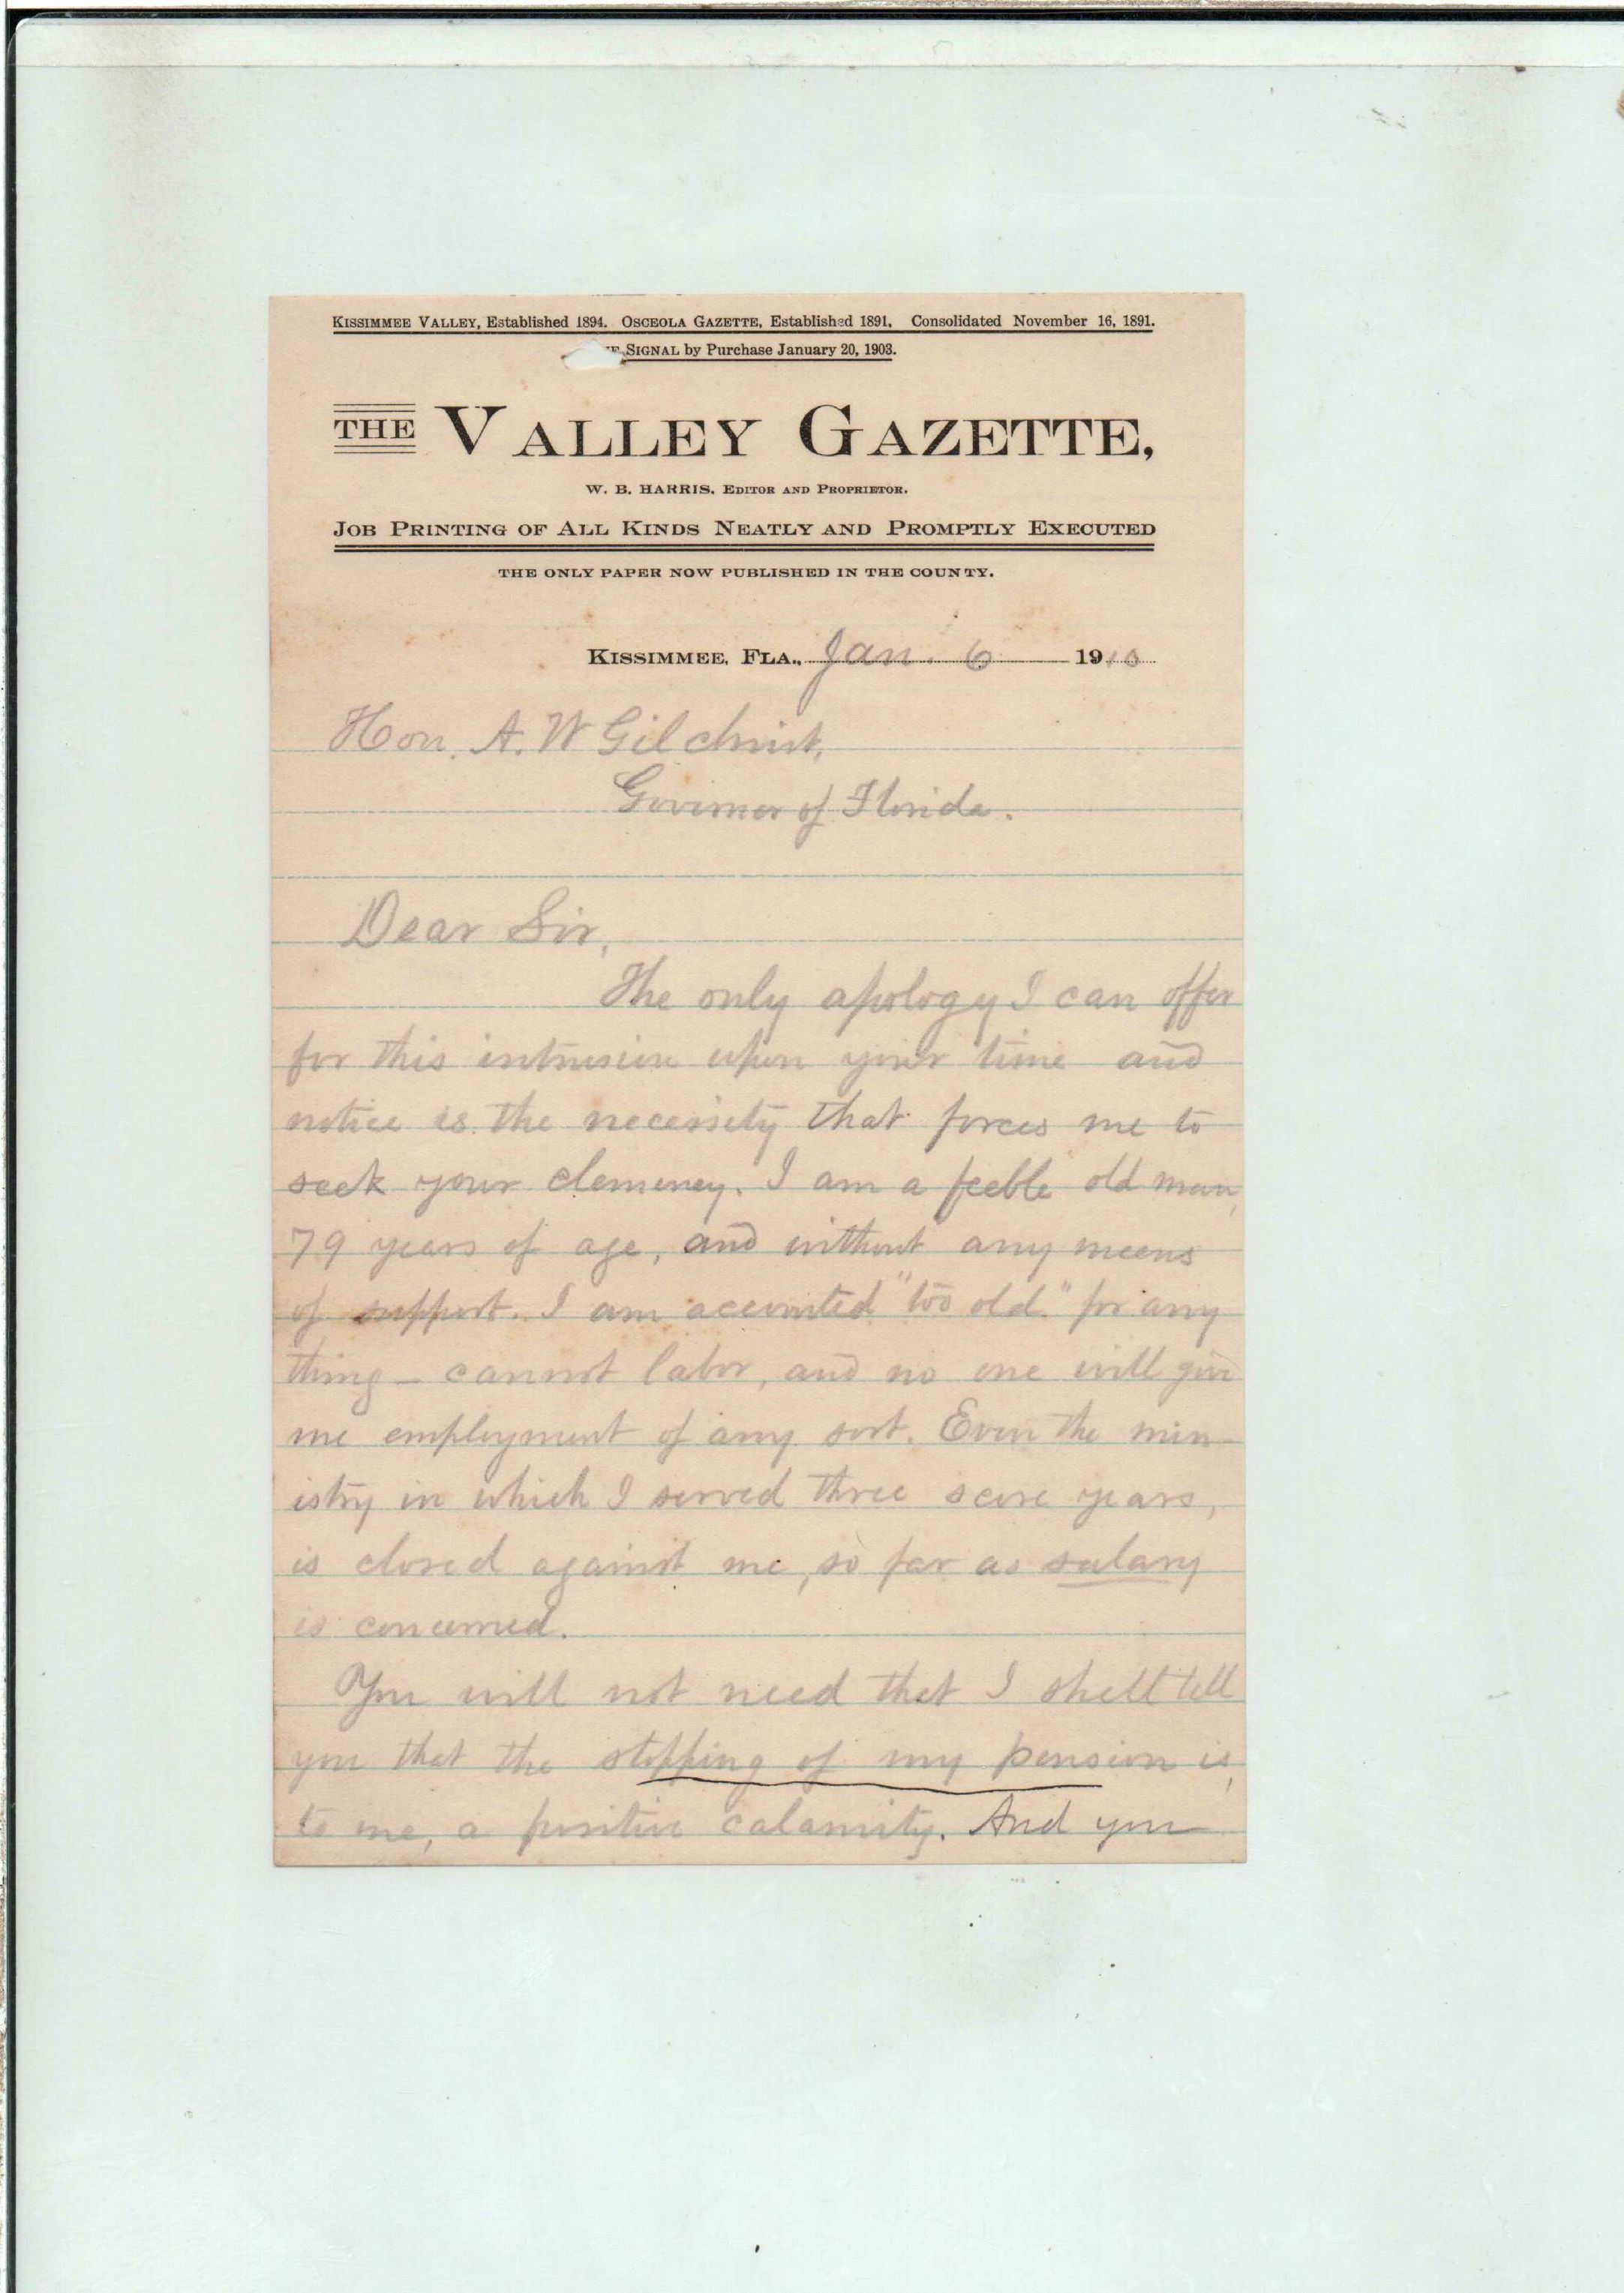 KISSIMMEE VALLEY, Established 1894. OSCEOLA GAZETTE, Established 1891, Consolidated November 16, 1891.
SIGNAL by Purchase January 20, 1903.
THE VALLEY GAZETTE,
W. B. HARRIS, EDITOR AND PROPRIETOR.
JOB PRINTING OF ALL KINDS NEATLY AND PROMPTLY EXECUTED
THE ONLY PAPER NOW PUBLISHED IN THE COUNTY.
KISSIMMEE, FLA., Jan. 6 1910
Hon. A. W Gilchrist,
Governor of Florida.
Dear Sir,
The only apology I can offer
for this intrusion upon your time and
notice is the necessity that forces me to
seek your clemency. I am a feeble old man,
79 years of age, and without any means
of support. I am accounted "too old" for any
thing – cannot labor, and no one will give
me employment of any sort. Even the min-
istry in which I served three score years,
is closed against me, so far as salary
is concerned.
You will not need that I shall tell
you that the stopping of my pension is,
to me, a positive calamity. And you